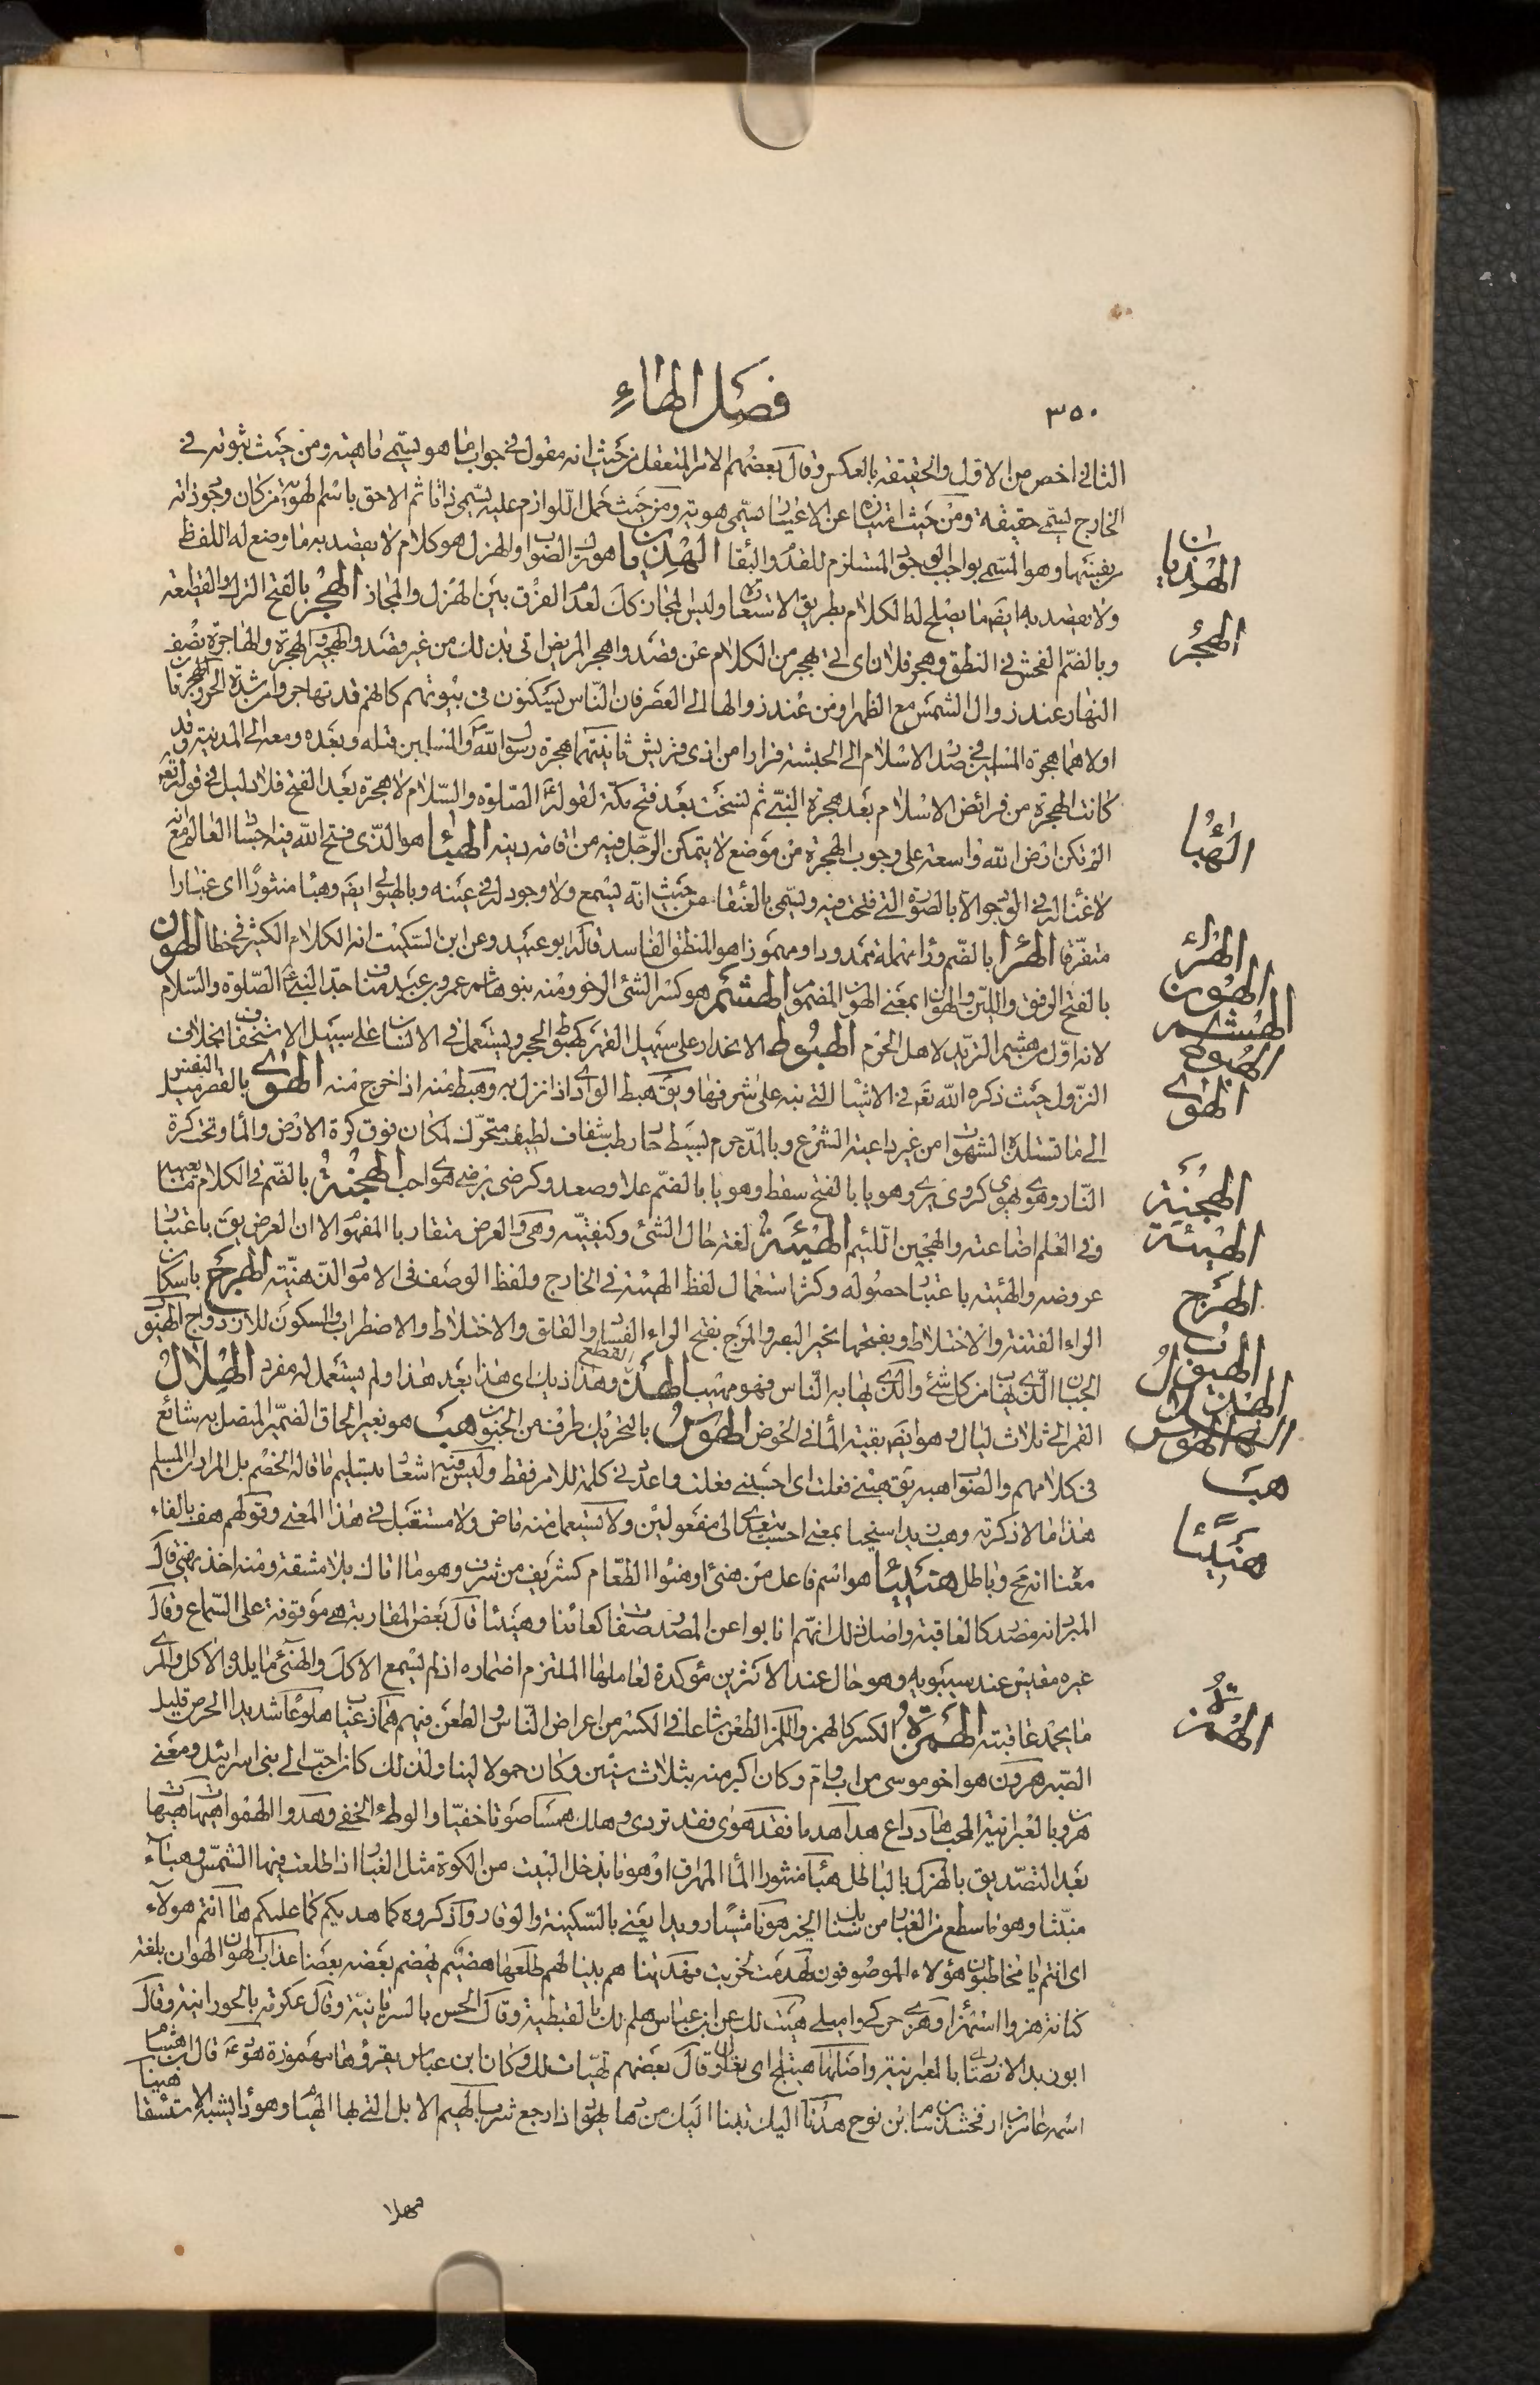 ٣٥٠
فصل الهاء
الثاني اخص من الاول والحقيقة بالعكس وقال بعضهم الامر المتعقل من حيث انه مقول في جواب ما هو يسمى ماهية ومن حيث ثبوته في
الخارج يسمى حقيقة ومن حيث امتيازه عن الاغيار يسمى هوية ومن حيث حمل اللوازم عليه يسمى ذاتا ثم الاحق باسم الهوية من كان وجود ذاته
من نفسها وهو المسمى بواجب الوجود المستلزم للقدم والبقاء الهذيان ما هو ترك الصواب والهزل هو كلام لا يقصد به ما وضع له اللفظ
ولا يقصد به ايضا ما يصلح له الكلام بطريق الاستعارة وليس المجاز كك لعدم الفرق بين الهزل والمجاز الهجر بالفتح الترك والقطيعة
وبالضم الفحش في النطق وهجر فلان اي اتى بهجر من الكلام عن قصد واهجر المريض اتى بذلك من غير قصد والهجير والهجيرة والهاجرة نصف
النهار عند زوال الشمس مع الظهر او من عند زوالها الى العصر فان الناس يستكنون في بيوتهم كانهم قد تهاجروا من شدة الحر والهجرتان
اولاهما هجرة المسلمين في صدر الاسلام الى الحبشة فرارا من اذى قريش ثانيتهما هجرة رسول الله والمسلمين قبله وبعده ومعه الى المدينة وقد
كانت الهجرة من فرائض الاسلام بعد هجرة النبي ثم نسخت بعد فتح مكة لقوله الصلوة والسلام لا هجرة بعد الفتح فلا دليل في قوله تعه
الم تكن ارض الله واسعة على وجوب الهجرة من موضع لا يتمكن الرجل فيه من اقامة دينه الهبا هو الذي فتح الله فيه اجساد العالم مع انه
لا عين له في الوجود الا بالصورة التي فتحت فيه ويسمى بالعنقاء من حيث انه يسمع ولا وجود له في عينه وبالهيولى ايضا وهباء منثورا اي غبارا
متفرقا الهراء بالضم وراء مهملة ممدودا ومهموزا هو المنطق الفاسد قاله ابو عبيد وعن ابن السكيت انه الكلام الكثير في خطا الهون
بالفتح الرفق واللين والهوان بمعنى الهون المضموم الهشم هو كسر الشئ الرخو ومنه بنو هاشم عمرو بن عبد مناف جد النبي الصلوة والسلام
لانه اول من هشم الثريد لاهل الحرم الهبوط الانحدار على سبيل القهر كهبوط الحجر ويستعمل في الانسان على سبيل الاستخفاف بخلاف
النزول حيث ذكره الله تعه في الاشياء التي نبه على شرفها ويق هبط الوادي اذا نزل به وهبط منه اذا خرج منه الهوى بالقصر ميل النفس
الى ما تستلذه الشهوات من غير داعية الشرع وبالمد جرم بسيط حار رطب شفاف لطيف متحرك لمكان فوق كرة الارض والماء وتحت كرة
النار وهوى يهوي كروى يروي وهويا بالفتح سقط وهويا بالضم علا وصعد وكرضي يرضى هوى احب الهجنة بالضم في الكلام ما يعيبه
وفي العلم اضاعته والهجين اللئيم الهيئة لغة حال الشئ وكيفيته وهي والعرض متقاربا المفهوم الا ان العرض يق باعتبار
عروضه والهيئة باعتبار حصوله وكثر استعمال لفظ الهيئة في الخارج ولفظ الوصف في الامور الذهنية الهرج باسكان
الراء الفتنة والاختلاط وبفتحها تحير البصر والمرج بفتح الراء الفساد والقلق والاختلاط والاضطراب والسكون للازدواج الهيوب
الجبان الذي يهاب من كل شئ والذي يهابه الناس فهو مهيب الهذ القطع وهذاذيك اي هذا بعد هذا ولم يستعمل له مفرد الهلال
القمر الى ثلاث ليال وهو ايضا بقية الماء في الحوض الهوس بالتحريك طرف من الجنون هب هو بغير الحاق الضمير المتصل به شائع
في كلامهم والصواب هبه يق هبني فعلت اي احسبني فعلت واعددني كلمة للامر فقط وليس فيه اشعار بتسليم ما قاله الخصم بل المراد ان المسلم
هذا ما لا ذكرته وهب زيدا سخيا بمعنى احسب يتعدى الى مفعولين ولا يستعمل منه ماض ولا مستقبل في هذا المعنى وقولهم هف بالفاء
معناه انه مح وباطل هنيئا هو اسم فاعل من هنئ او هنوا الطعام كشريف من شرف وهو ما اتاك بلا مشقة ومنه اخذ يهنئ قال
المبرد انه مصدر كالعاقبة واصل ذلك انهم انابوا عن المصدر صفات كعائذا وهنيئا قال بعض المقاربة هي موقوفة على السماع وقال
غيره مقيس عند سيبويه وهو حال عند الاكثرين مؤكدة لعاملها الملتزم اضماره اذ لم يسمع الا كك والهنئ ما يلذه الاكل والمرئ
ما يحمد عاقبته الهمزة الكسر كالهمز واللمز الطعن شاعا في الكسر من اعراض الناس والطعن فيهم هماز عياب هلوعا شديدا الحرص قليل
الصبر هرون هو اخو موسى من اب وام وكان اكبر منه بثلاث سنين وكان حمولا لينا ولذلك كان احب الى بني اسرائيل ومعنى
هرون بالعبرانية المحبب هاد داع هدا هدما فقد هوى فقد تردى وهلك همسا صوتا خفيا والوطء الخفي وهدوا الهموا هيهات هيهات
بعد التصديق بالهزل بالباطل هباء منثورا الماء المهراق او هو ما يدخل البيت من الكوة مثل الغبار اذا طلعت فيها الشمس وهباء
منبثا وهو ما سطع من الغبار من سنابك الخيل هونا مشيا رويدا يعني بالسكينة والوقار واذكروه كما هديكم كما علمكم ها انتم هولاء
اي انتم يا مخاطبون هؤلاء الموصوفون لهدمت لخربت فهديناهم بينا لهم طلعها هضيم يهضم بعضه بعضا عذاب الهون الهوان بلغة
كنانة هزوا استهزاء وهزي حركي واميلي هيت لك عن ابن عباس هلم لك بالقبطية وقال الحسن بالسريانية وقال عكرمة بالحورانية وقال
ابو زيد الانصاري بالعبرانية واصلها هيتلج اي تعال وقال بعضهم تهيات لك وكان ابن عباس يقرؤها مهموزة هود قال ابن هشام
اسمه عابر بن ارفخشد بن سام ابن نوح هدنا اليك تبنا اليك من هاد يهود اذا رجع شرب الهيم الابل التي لها الهيام وهو داء يشبه الاستسقاء
مهلا
الهذيان
الهجر
الهبا
الهراء
الهون
الهشم
الهبوط
الهوى
الهجنة
الهيئة
الهرج
الهيوب
الهذ
الهلال
الهوس
هب
هنيئا
الهمزة